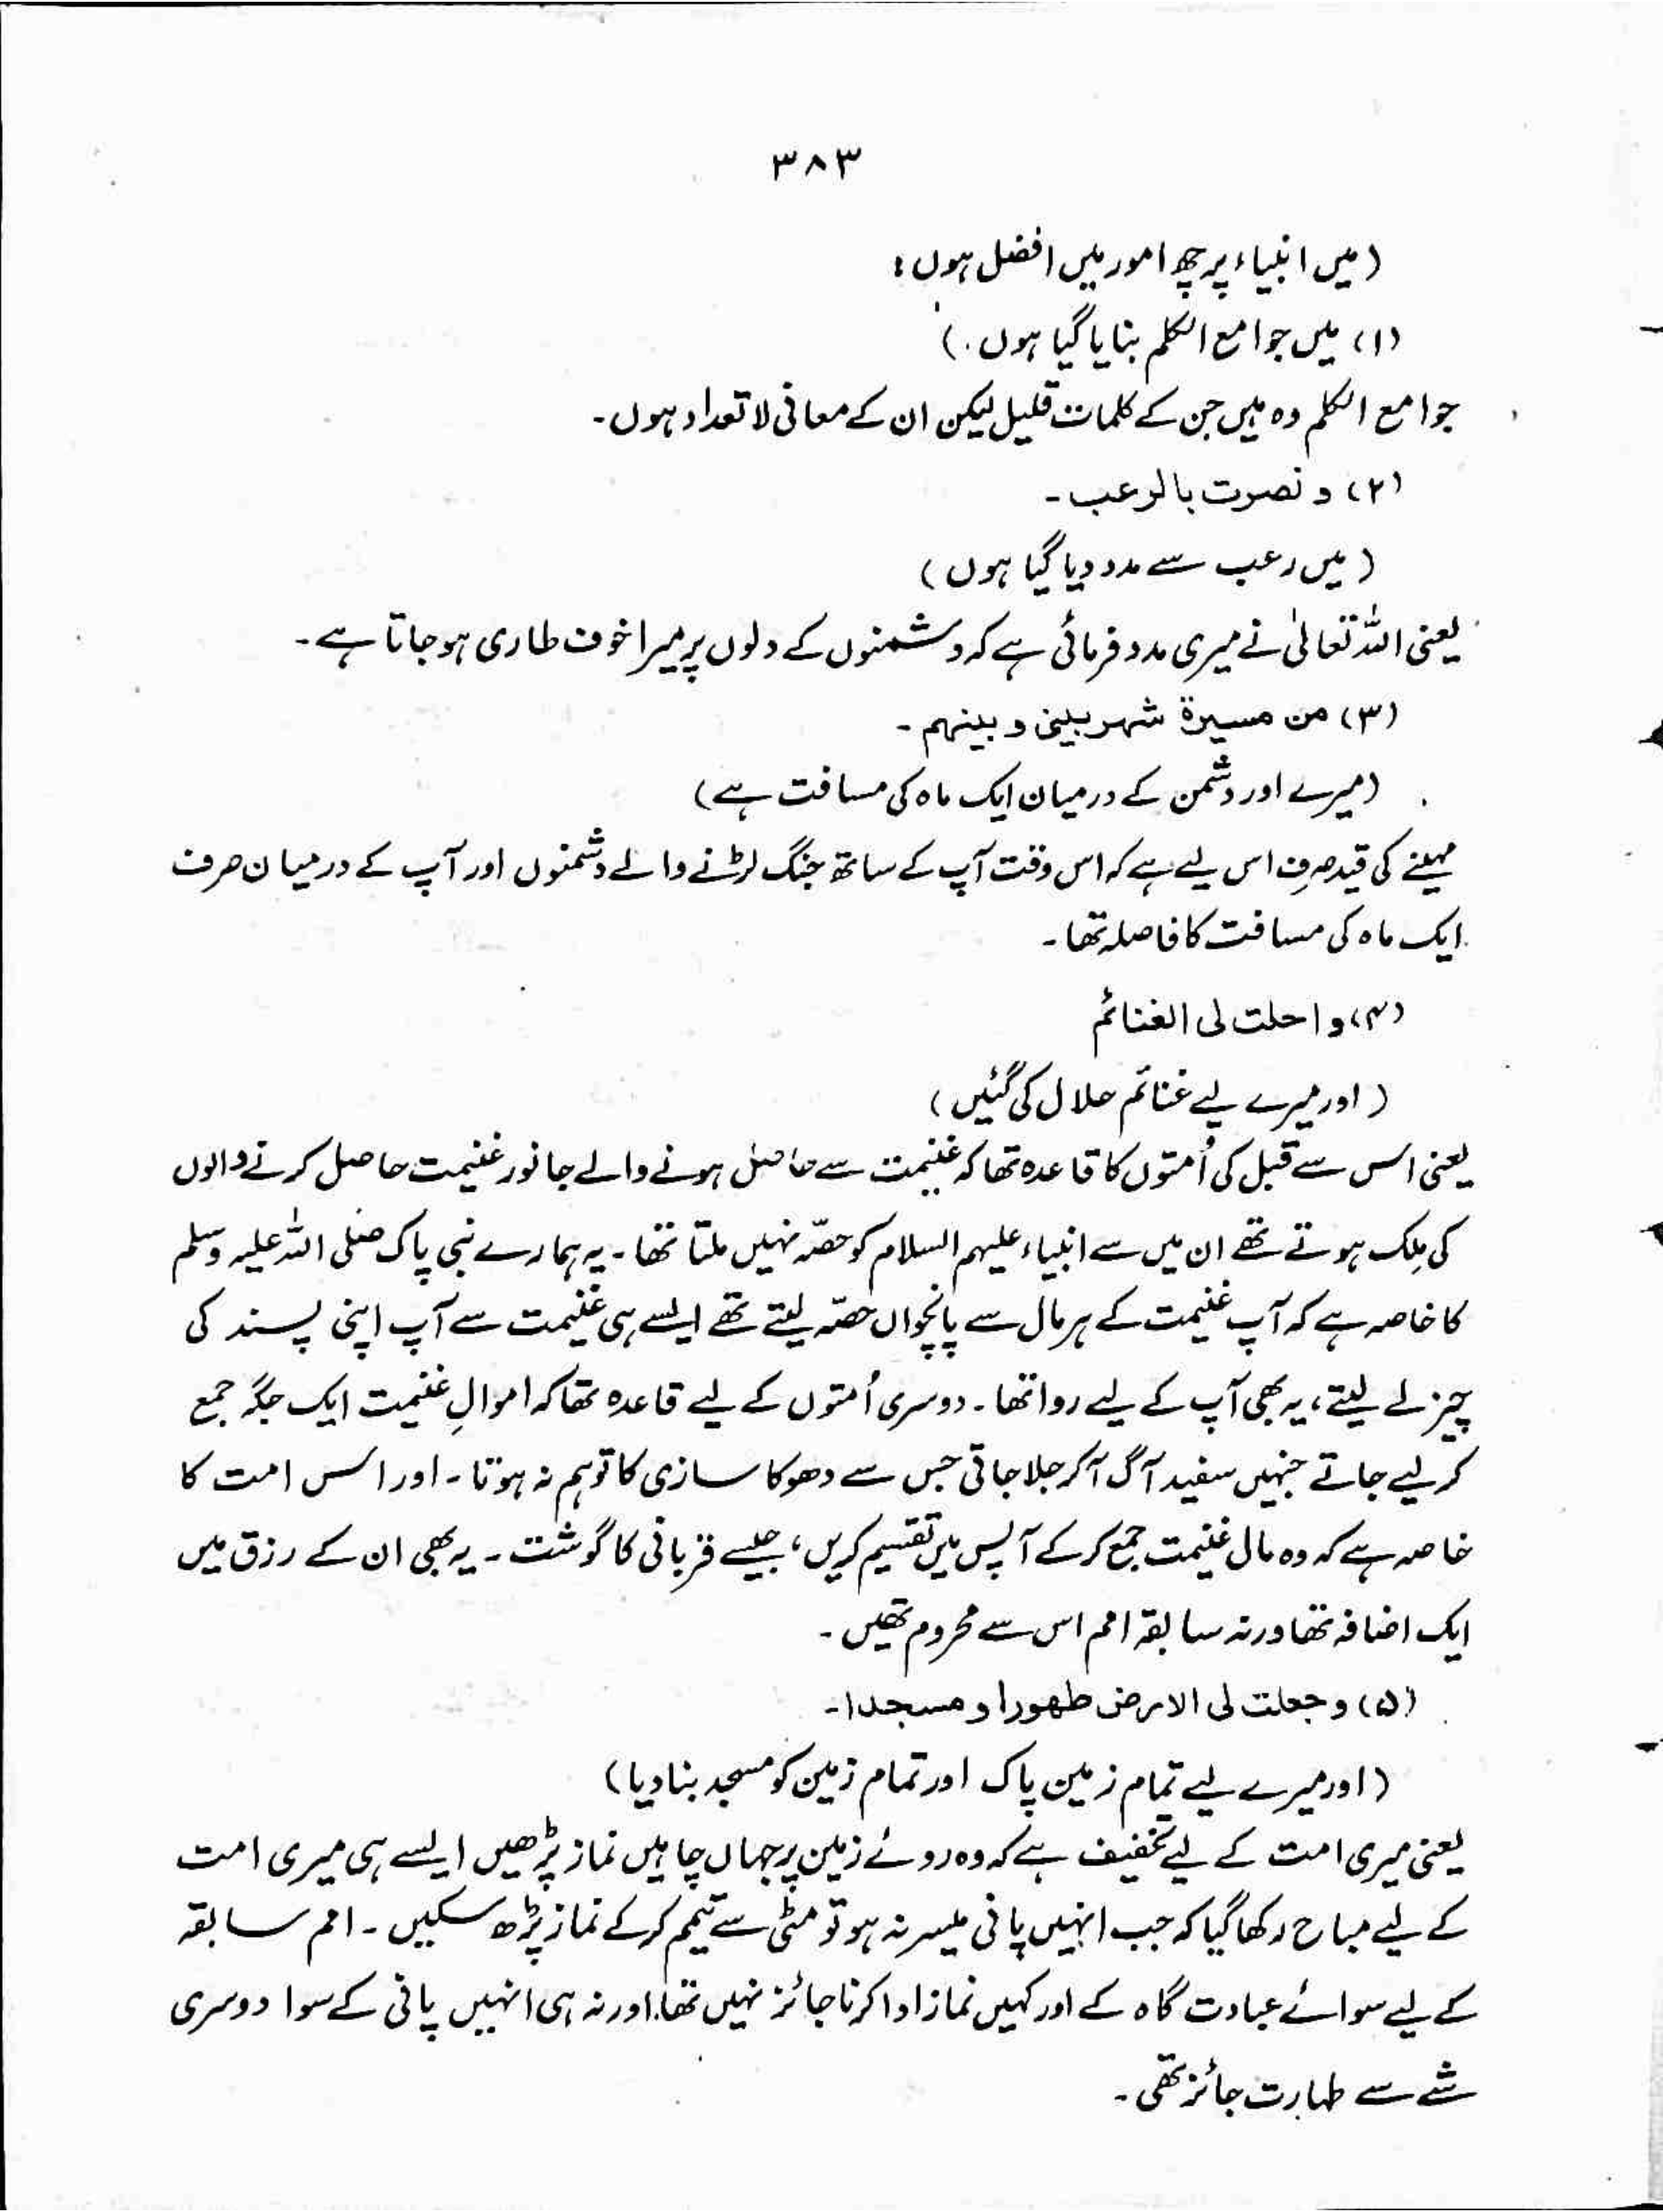 ۳۸۳
(میں انبیاء پر چھ امور میں افضل ہوں:
(۱) میں جوامع الکلم بنایا گیا ہوں.)
جوامع الکلم وہ ہیں جن کے کلمات قلیل لیکن ان کے معانی لاتعداد ہوں۔
(۲) و نصرت بالرعب۔
(میں رعب سے مدد دیا گیا ہوں)
یعنی اللہ تعالیٰ نے میری مدد فرمائی ہے کہ دشمنوں کے دلوں پر میرا خوف طاری ہو جاتا ہے۔
(۳) من مسیرة شهر بینی و بینهم۔
(میرے اور دشمن کے درمیان ایک ماہ کی مسافت ہے)
مہینے کی قید صرف اس لیے ہے کہ اس وقت آپ کے ساتھ جنگ لڑنے والے دشمنوں اور آپ کے درمیان صرف
ایک ماہ کی مسافت کا فاصلہ تھا۔
(۴) و احلت لی الغنائم
(اور میرے لیے غنائم حلال کی گئیں)
یعنی اس سے قبل کی اُمتوں کا قاعدہ تھا کہ غنیمت سے حاصل ہونے والے جانور غنیمت حاصل کرنے والوں
کی مِلک ہوتے تھے ان میں سے انبیاء علیہم السلام کو حصّہ نہیں ملتا تھا۔ یہ ہمارے نبی پاک صلی اللہ علیہ وسلم
کا خاصہ ہے کہ آپ غنیمت کے ہر مال سے پانچواں حصّہ لیتے تھے ایسے ہی غنیمت سے آپ اپنی پسند کی
چیز لے لیتے، یہ بھی آپ کے لیے روا تھا۔ دوسری اُمتوں کے لیے قاعدہ تھا کہ اموالِ غنیمت ایک جگہ جمع
کر لیے جاتے جنہیں سفید آگ آکر جلا جاتی جس سے دھوکا سازی کا توہم نہ ہوتا۔ اور اس امت کا
خاصہ ہے کہ وہ مال غنیمت جمع کر کے آپس میں تقسیم کریں، جیسے قربانی کا گوشت۔ یہ بھی ان کے رزق میں
ایک اضافہ تھا ورنہ سابقہ امم اس سے محروم تھیں۔
(۵) و جعلت لی الارض طهورا و مسجدا۔
(اور میرے لیے تمام زمین پاک اور تمام زمین کو مسجد بنا دیا)
یعنی میری امت کے لیے تخفیف ہے کہ وہ روئے زمین پر جہاں چاہیں نماز پڑھیں ایسے ہی میری امت
کے لیے مباح رکھا گیا کہ جب انہیں پانی میسر نہ ہو تو مٹی سے تیمم کر کے نماز پڑھ سکیں۔ امم سابقہ
کے لیے سوائے عبادت گاہ کے اور کہیں نماز ادا کرنا جائز نہیں تھا اور نہ ہی انہیں پانی کے سوا دوسری
شے سے طہارت جائز تھی۔